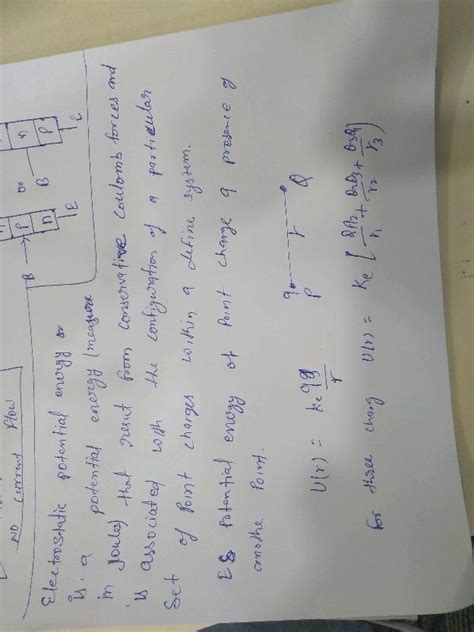 NO Current Flow
B
P
n
E
B
n
P
E
Electrostatic potential energy or
is a potential energy (measure
in Joules) that result from conservative Coulomb forces and
is associated with the configuration of a particular
set of Point charges within a define system.
ES Potential energy of Point charge q presence of
anothe Point.
q
P
r
Q
U(r) = ke qQ/r
for three charg U(r) = ke [